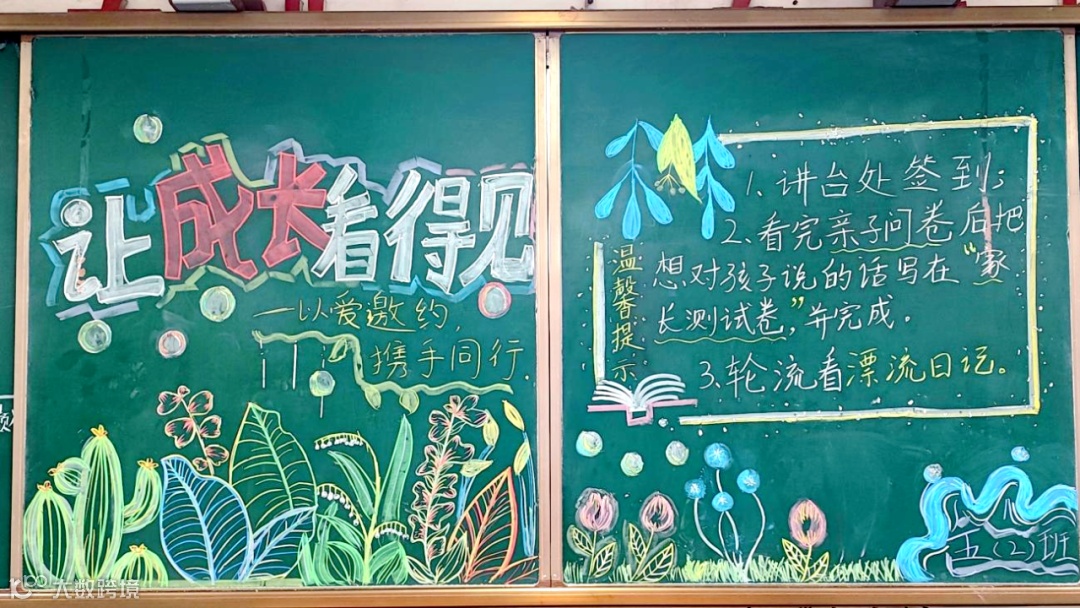 让成长看得见
一以爱邀约，
携手同行.
温馨提示
1、讲台处签到；
2、看完亲子问卷后把
想对孩子说的话写在“家
长测试卷”，并完成。
3、轮流看漂流日记。
五(2)班
大数跨境